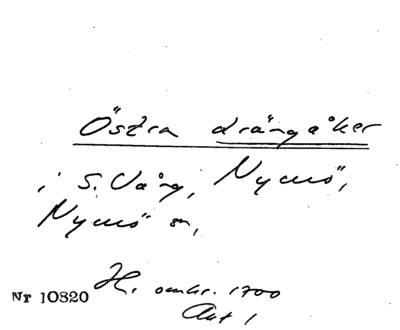 Östra drängåker
i S. Vång, Nymö,
Nymö sn,
H. omkr. 1700
Nr 10820
Akt 1